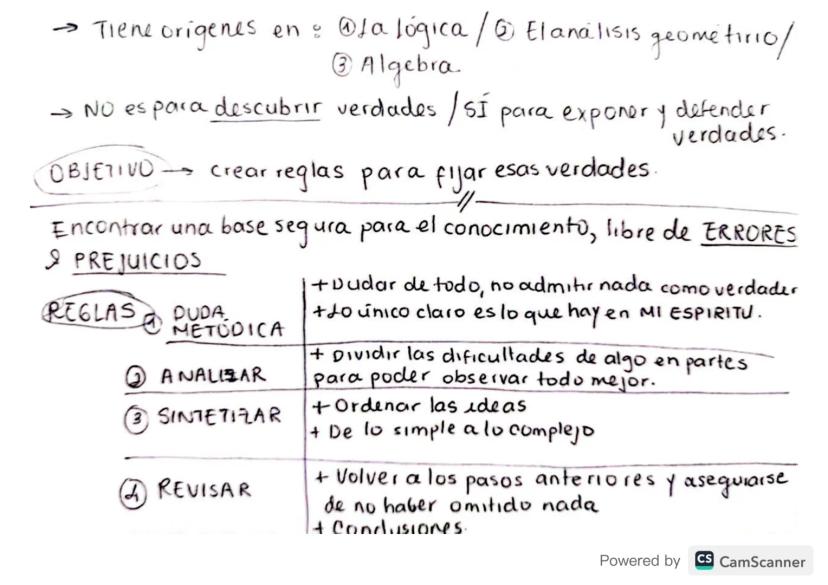 → Tiene orígenes en: ① La lógica / ② El análisis geométrico /
③ Algebra.
→ NO es para descubrir verdades / SÍ para exponer y defender
verdades.
OBJETIVO → crear reglas para fijar esas verdades.
Encontrar una base segura para el conocimiento, libre de ERRORES
& PREJUICIOS
REGLAS ① DUDA METÓDICA
+ Dudar de todo, no admitir nada como verdader
+ Lo único claro es lo que hay en MI ESPIRITU.
② ANALIZAR
+ Dividir las dificultades de algo en partes
para poder observar todo mejor.
③ SINTETIZAR
+ Ordenar las ideas
+ De lo simple a lo complejo
④ REVISAR
+ Volver a los pasos anteriores y asegurarse
de no haber omitido nada
+ Conclusiones.
Powered by CS CamScanner